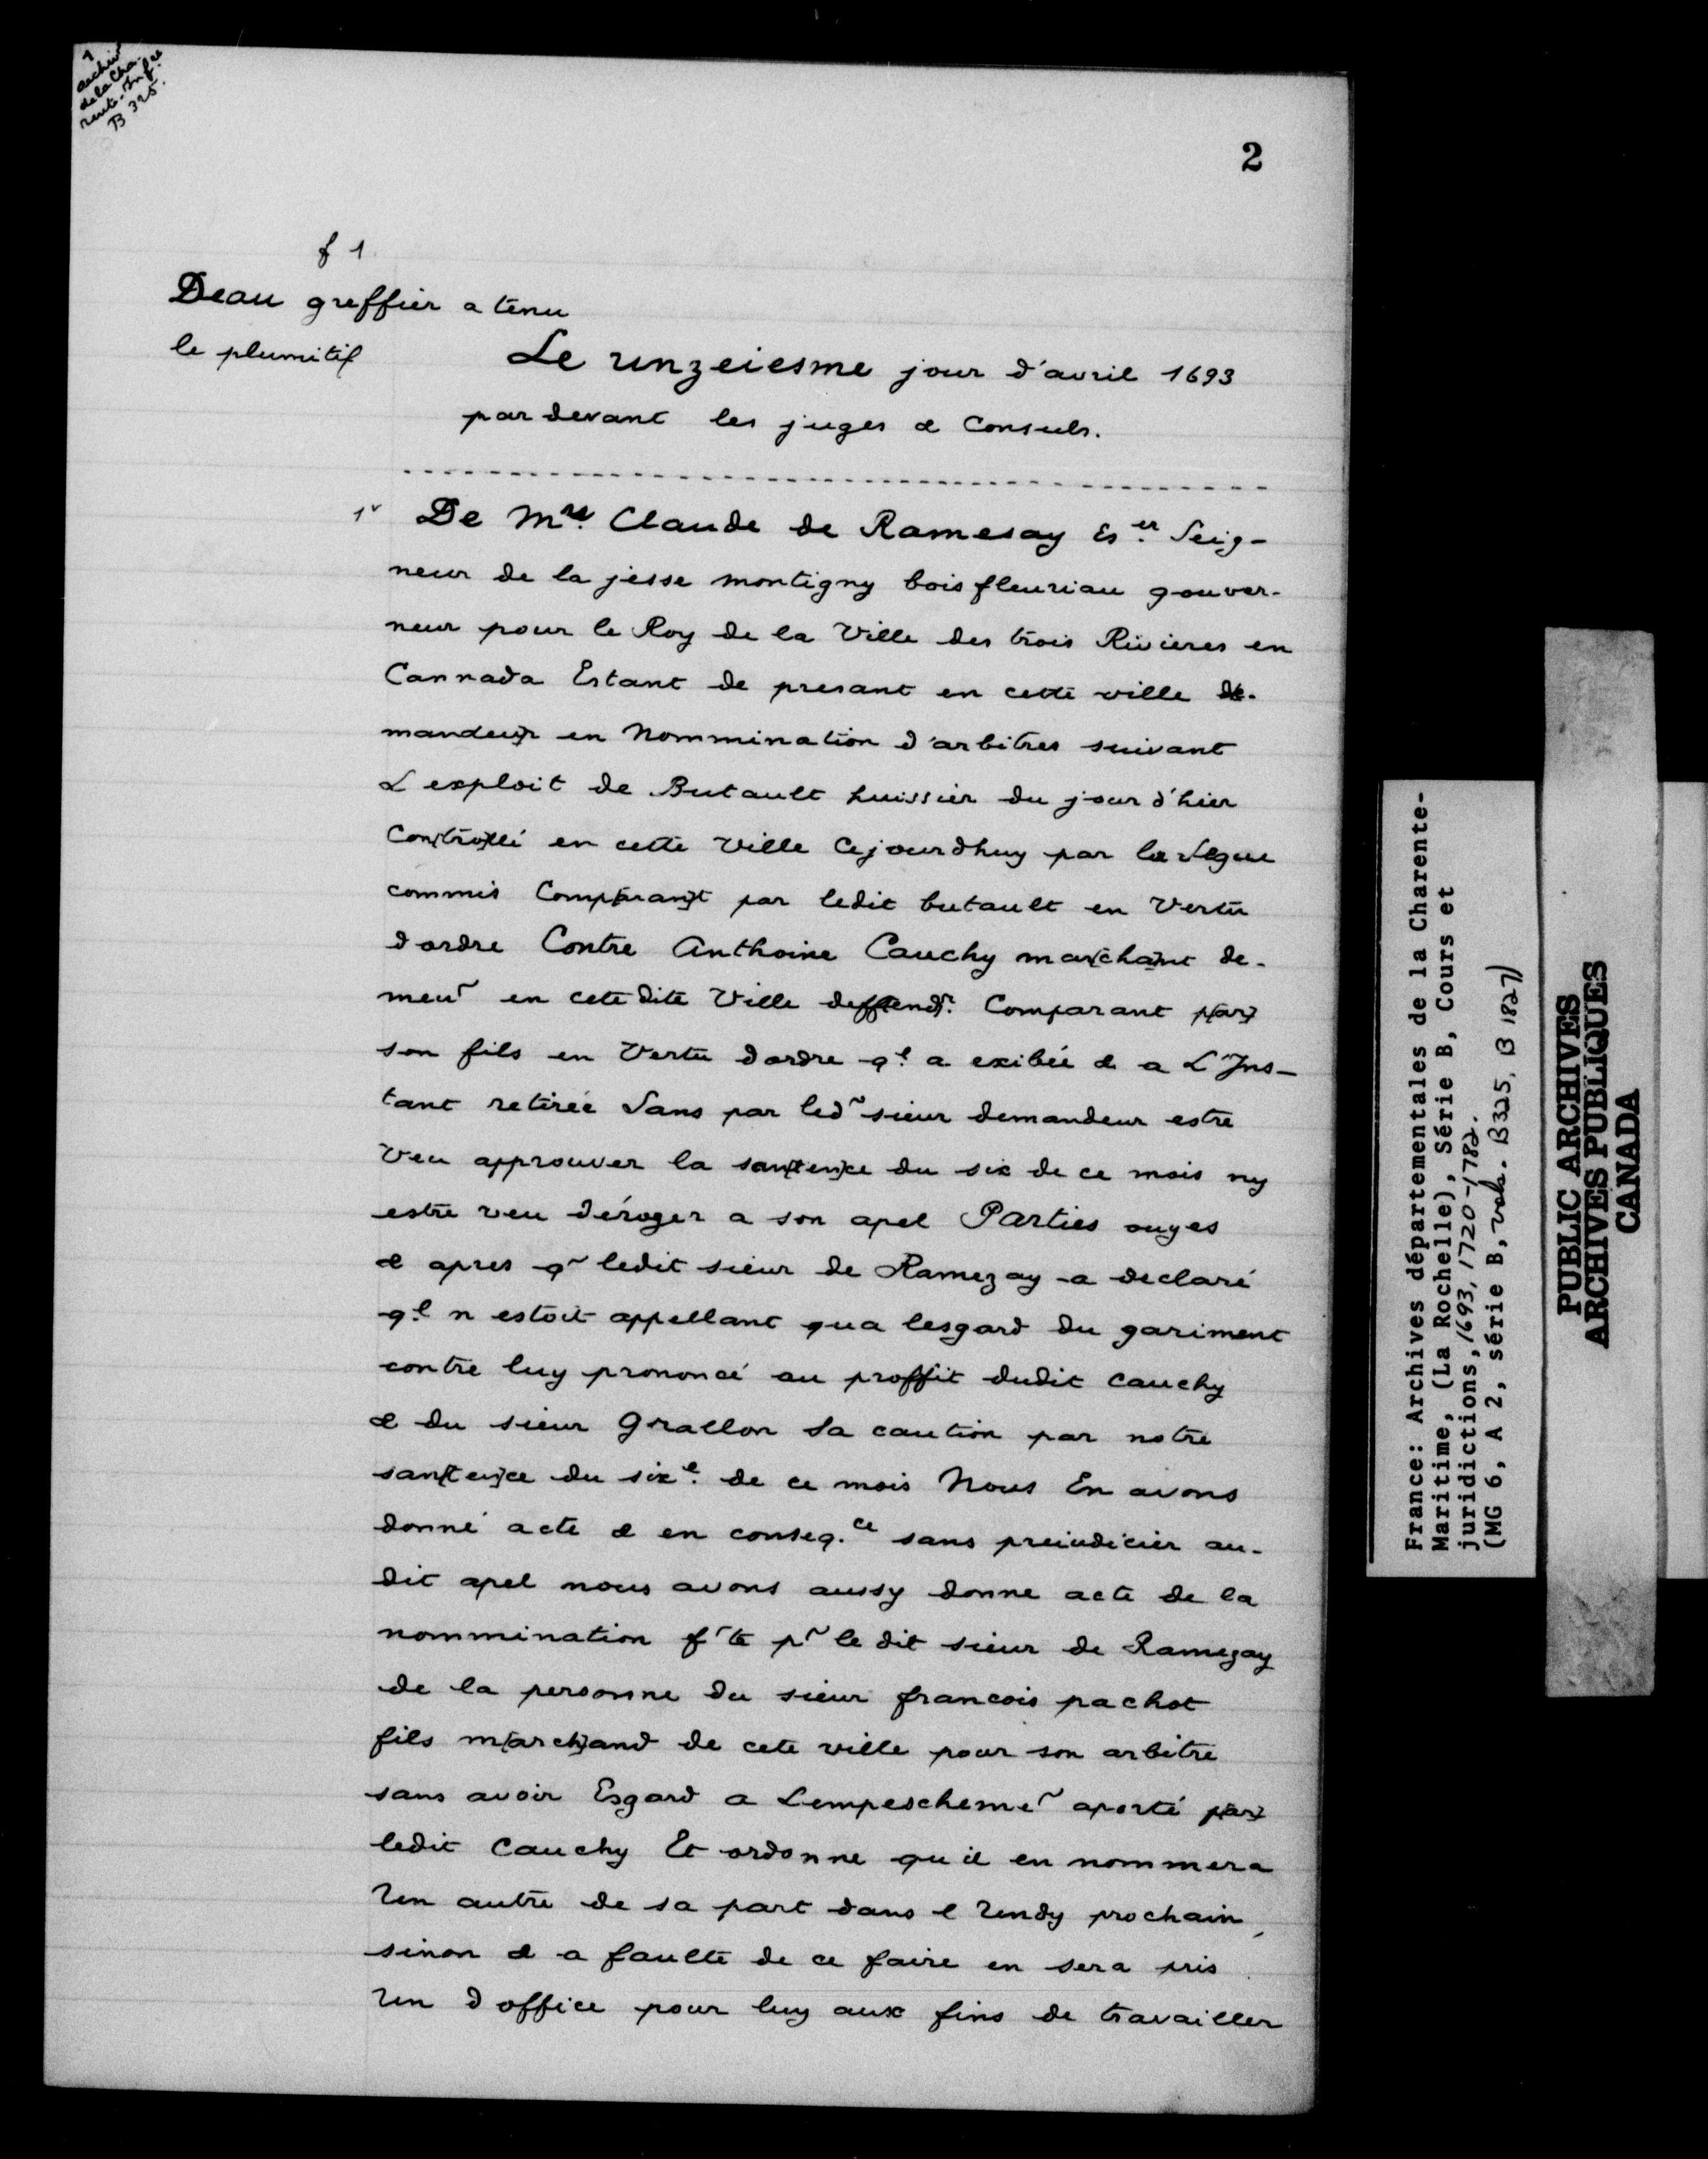 1
archiv
de la Cha-
rente-Infre
B 325.
2
f 1
Deau greffier a tenu
le plumitif
Le unzeiesme jour d'avril 1693
par devant les juges & Consuls.
1r De Mre Claude de Ramesay Eser Seig-
neur de la jesse montigny bois fleuriau gouver-
neur pour le Roy de la Ville des trois Rivieres en
Cannada Estant de presant en cette ville de-
mandeur en Nommination d'arbitres suivant
L exploit de Butault huissier du jour d'hier
Con[tro]llé en cette Ville Cejourdhuy par
commis Comp[aran]t par ledit butault en Vertu
d ordre Contre Anthoine Cauchy mar[cha]nt de-
meur~ en cete dite Ville deffendr. Comparant p[ar]
son fils en Vertu dordre ql a exibée & a L'Ins-
tant retirée Sans par led~ sieur demandeur estre
Veu approuver la san[ten]ce du six de ce mois ny
estre veu déroger a son apel Parties ouyes
& apres q~ ledit sieur de Ramezay a declaré
ql n estoit appellant qua lesgard du gariment
contre luy prononcé au proffit dudit Cauchy
& du sieur Grallon Sa caution par notre
san[ten]ce du sixe de ce mois Nous En avons
donné acte & en conseq.ce sans preiudicier au-
dit apel nous avons aussy donne acte de la
nommination f~te p~ le dit sieur de Ramezay
de la personne du sieur francois pachot
fils m[arch]and de cete ville pour son arbitre
sans avoir Esgard a Lempescheme~ aporté p[ar]
ledit Cauchy Et ordonne qu il en nommera
Un autre de sa part dans prochain,
sinon & a faulte de ce faire en sera pris
Un d office pour luy aux fins de travailler
France: Archives départementales de la Charente-
Maritime, (La Rochelle), Série B, Cours et
juridictions, 1693, 1720-1782.
(MG 6, A 2, série B, vols. B325, B 1827)
PUBLIC ARCHIVES
ARCHIVES PUBLIQUES
CANADA